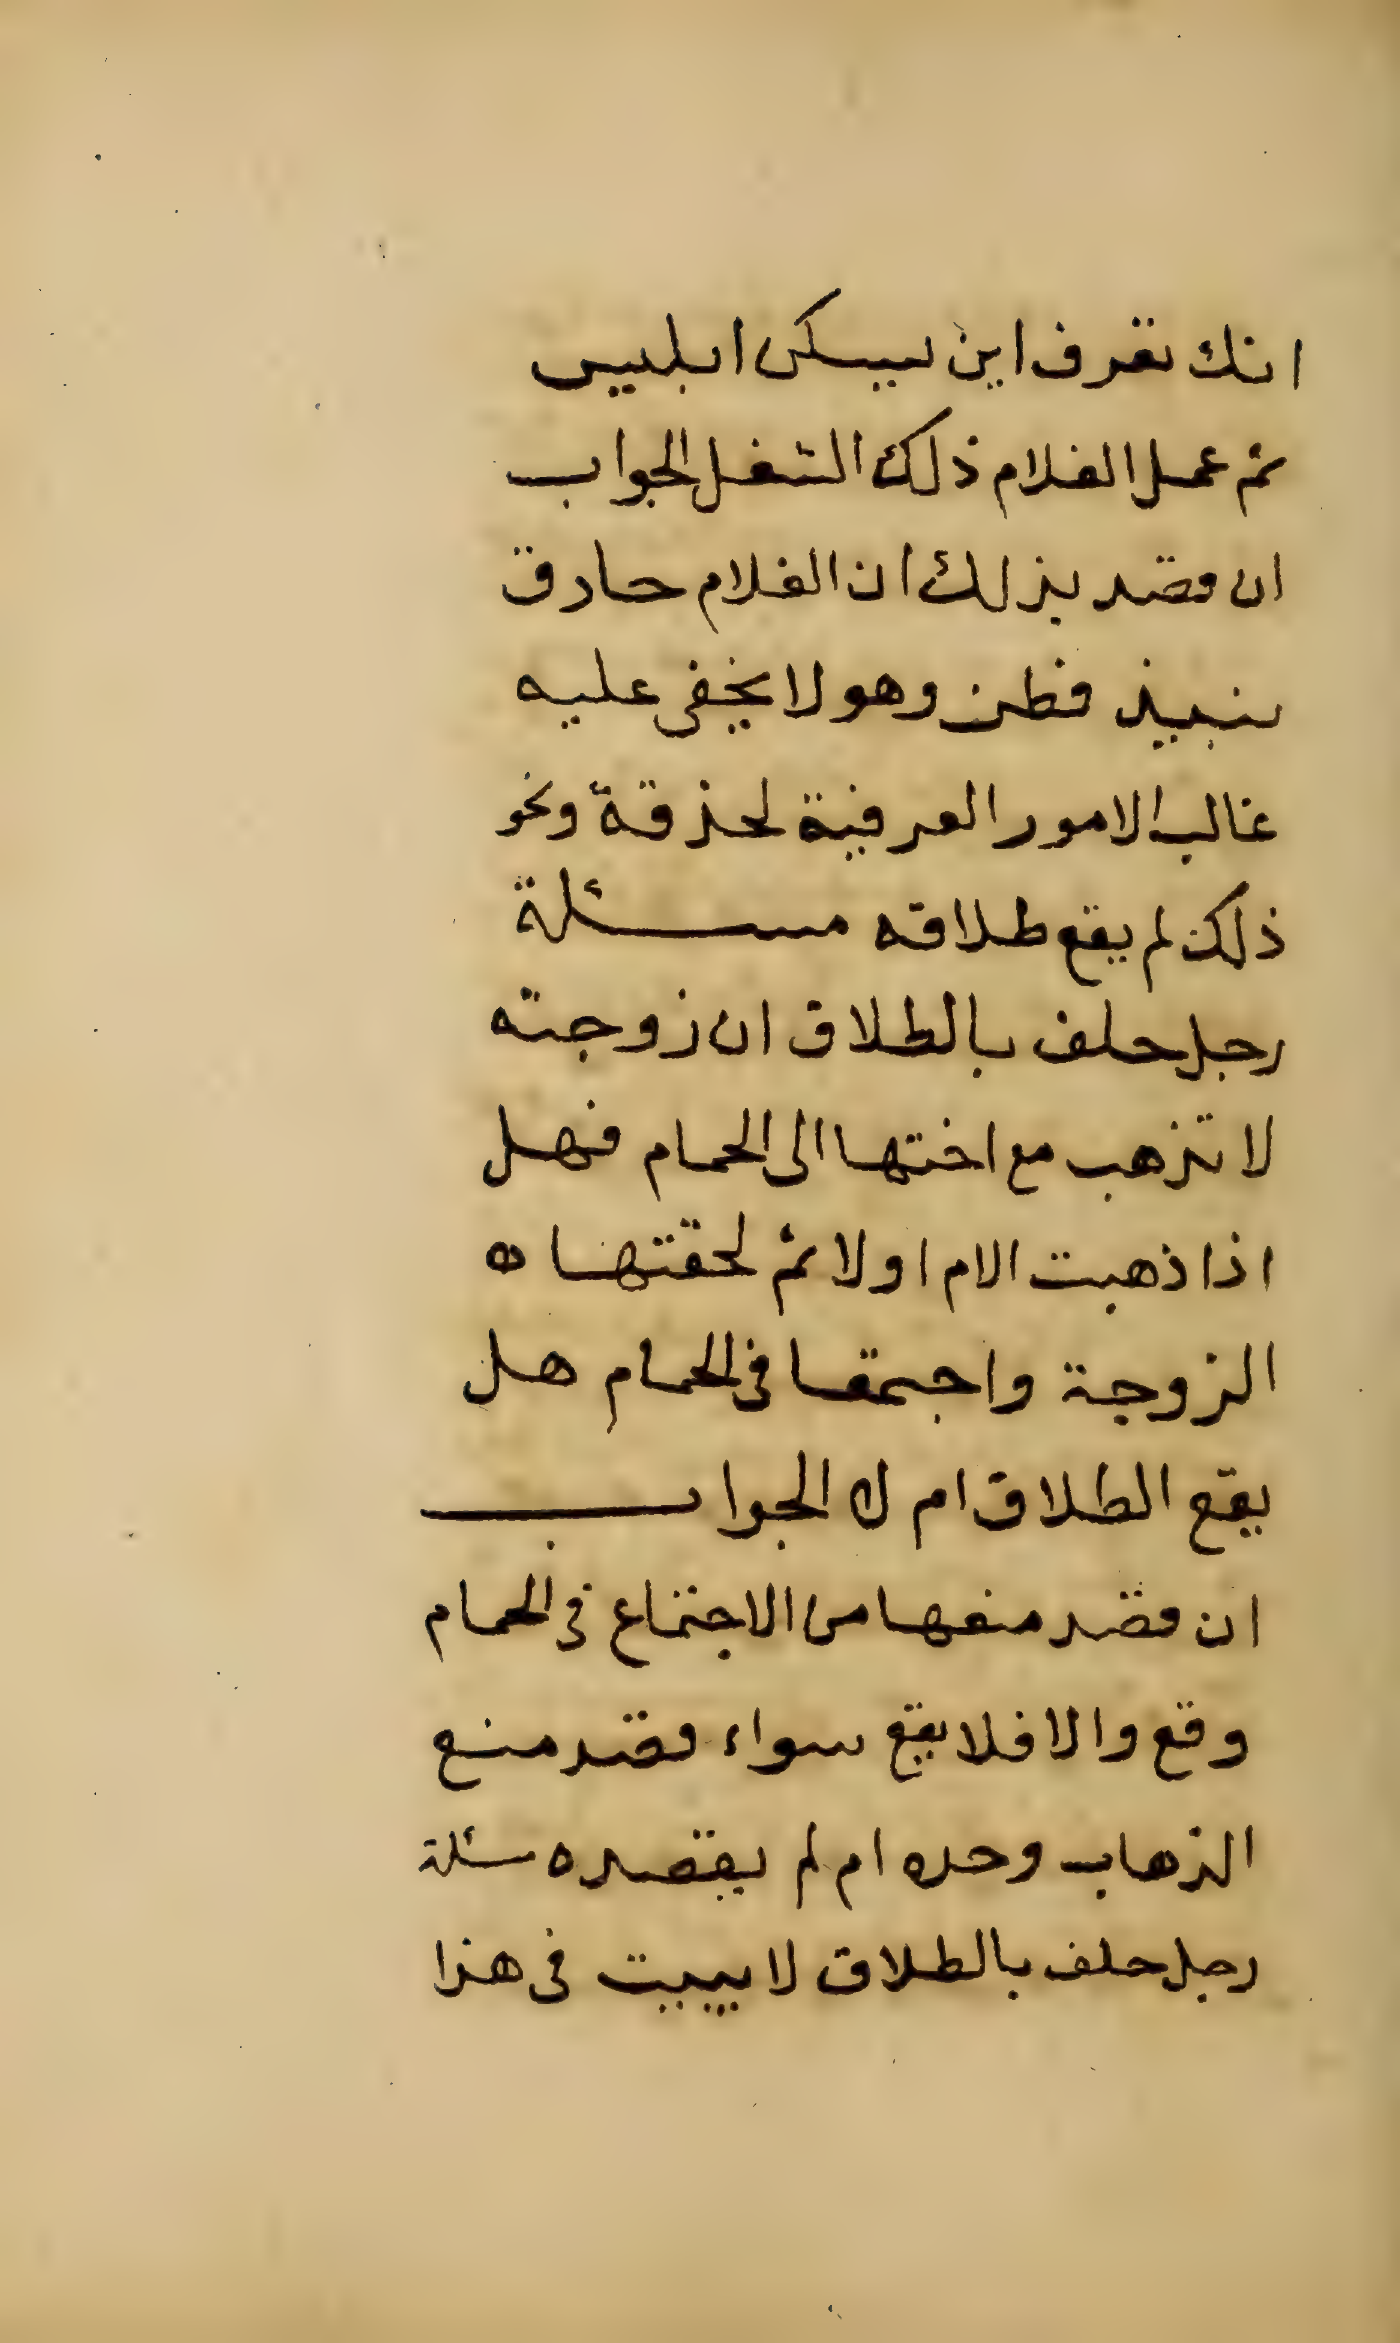 انك تعرف اين يسكن ابليس
ثم عمل الغلام ذلك الشغل الجواب
ان قصد بذلك ان الغلام حادق
نبيذ فطن وهو لا يخفى عليه
غالب الامور العرفية لحذقة ونحو
ذلك لم يقع طلاقه مسئلة
رجل حلف بالطلاق ان زوجته
لا تذهب مع اختها الى الحمام فهل
اذا ذهبت الام اولا ثم لحقتها ه
الزوجة واجتمعا فى الحمام هل
يقع الطلاق ام لا الجواب
ان قصد منعها من الاجتماع فى الحمام
وقع والا فلا يقع سواء قصد منع
الذهاب وحده ام لم يقصده مسئلة
رجل حلف بالطلاق لا يبيت فى هذا